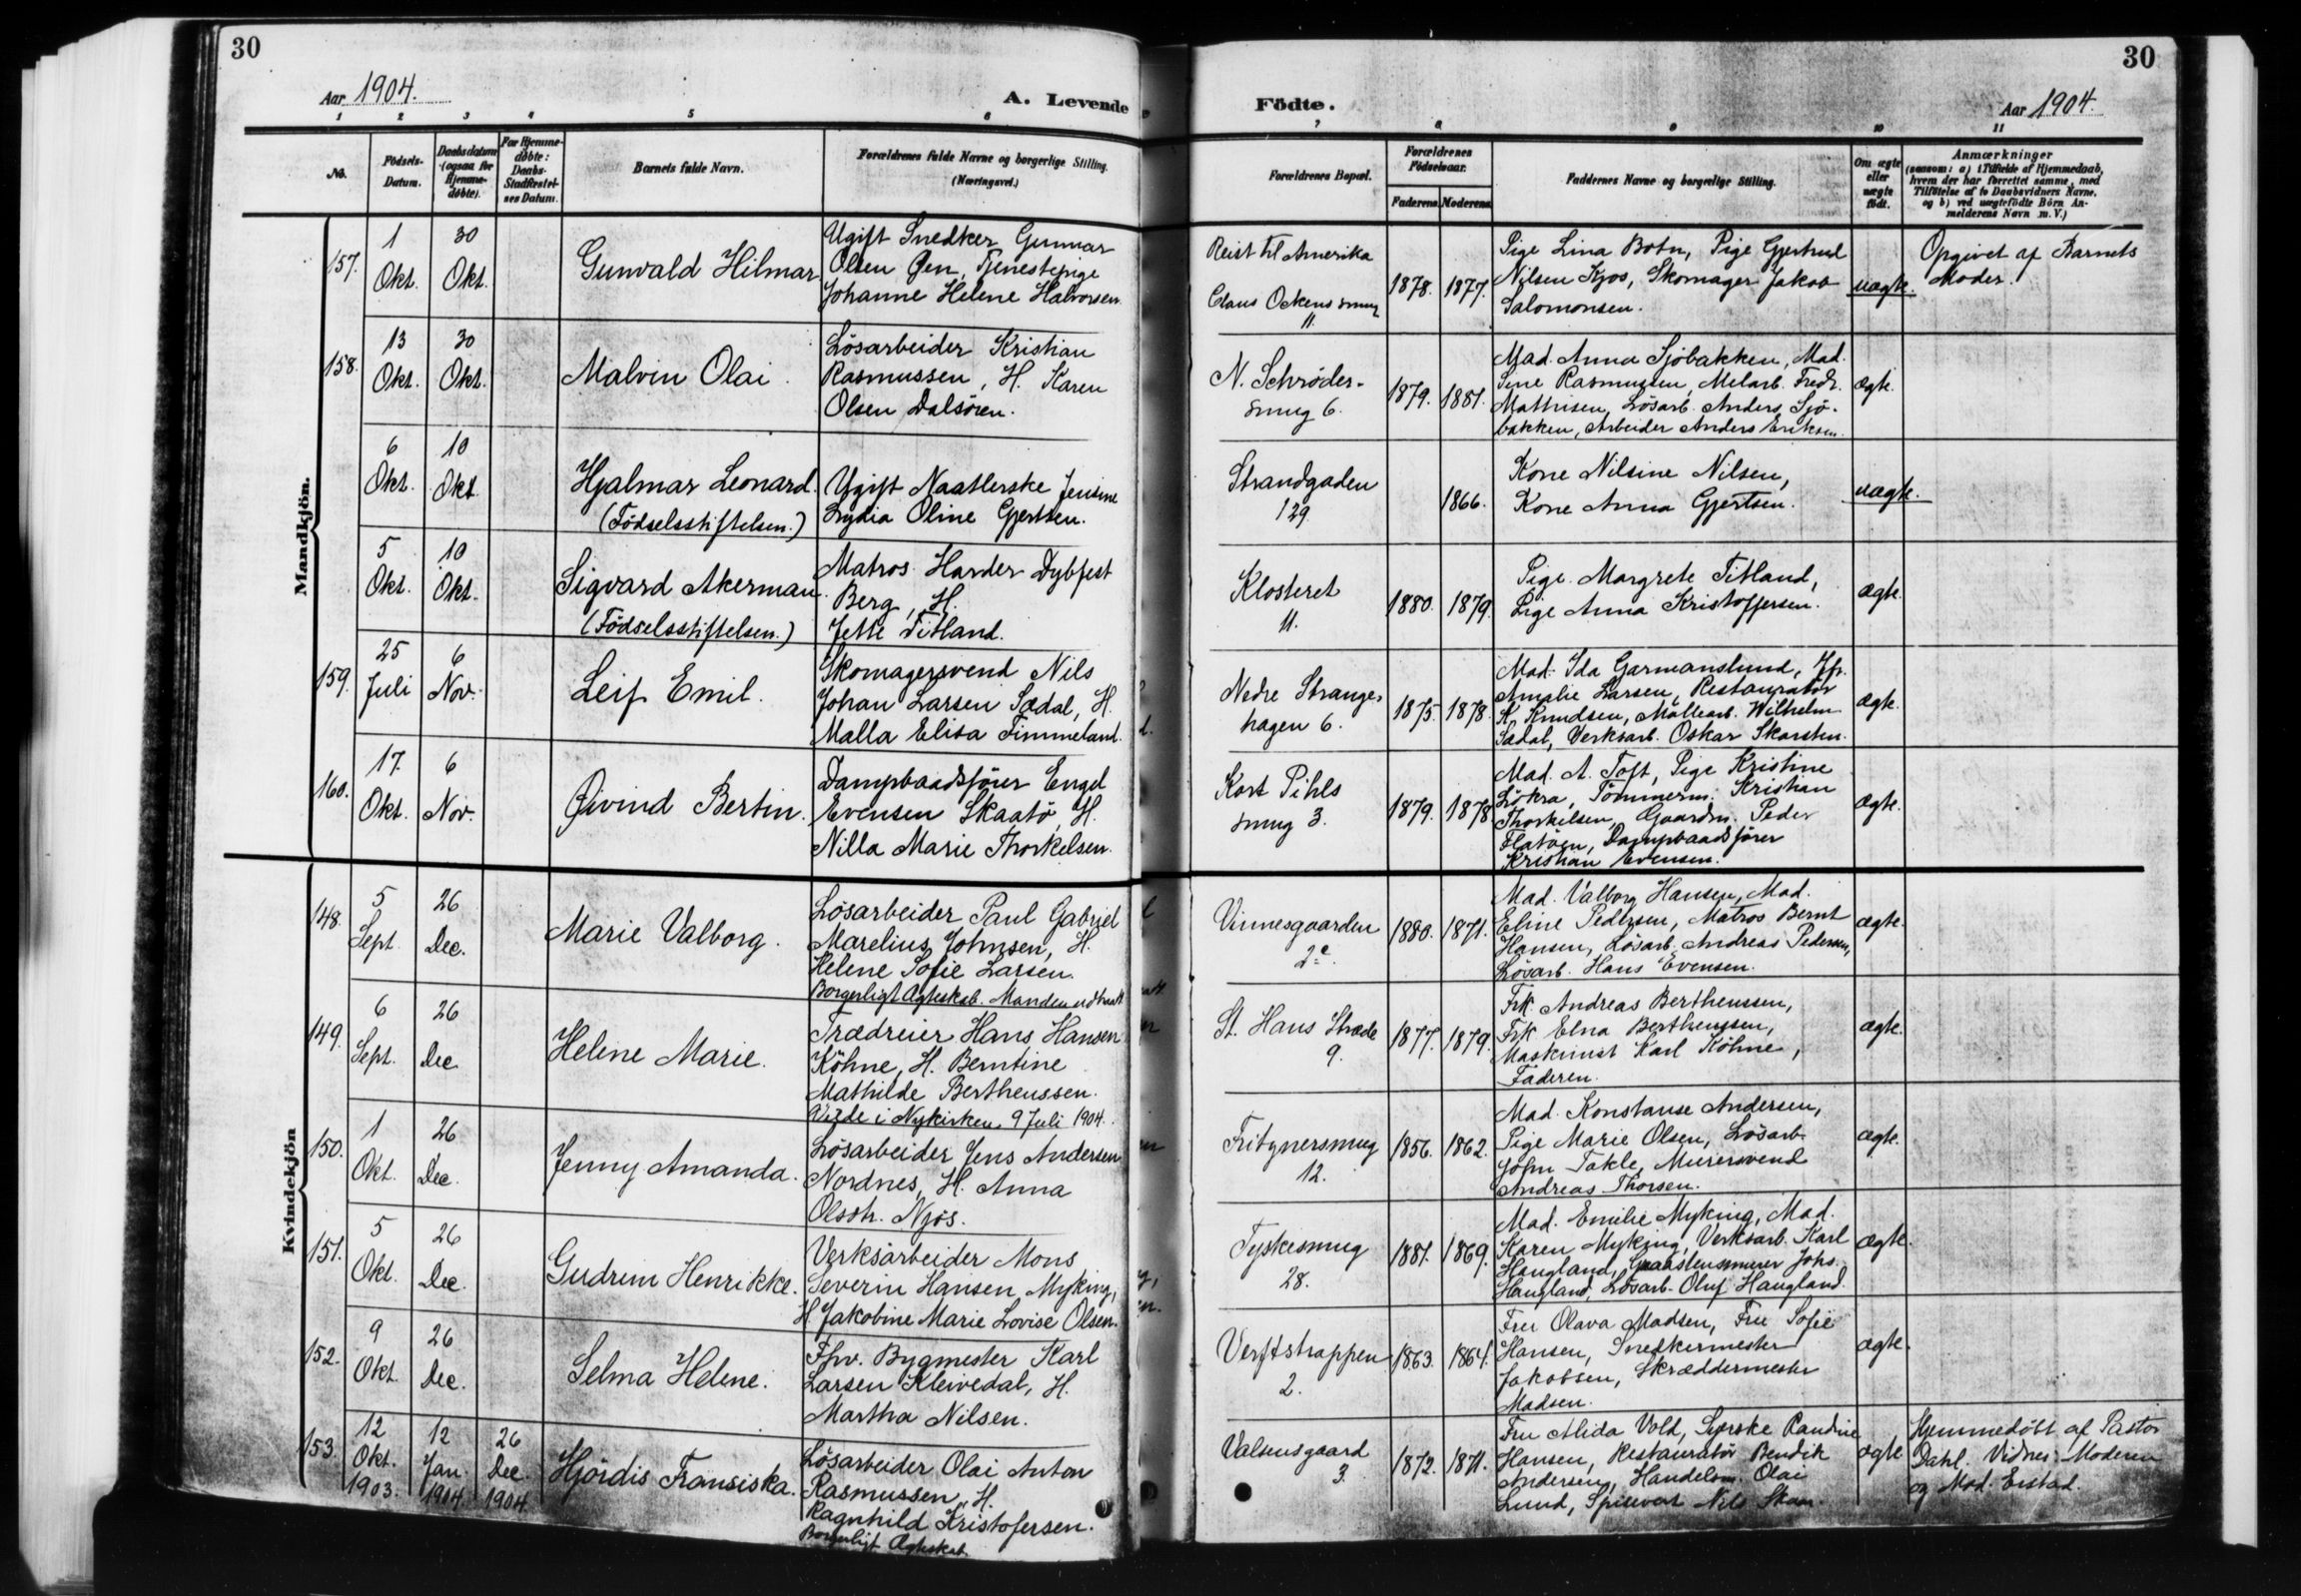 30
Aar 1904.
A. Levende
1 2 3 4 5 6
No.
Födsels-
Datum.
Daabsdatum
(ogsaa for
Hjemme-
døbte).
For Hjemme-
døbte:
Daabs-
Stadfæstel-
ses Datum.
Barnets fulde Navn.
Forældrenes fulde Navne og borgerlige Stilling.
(Næringsvei.)
Mandkjön.
157.
1
Okt.
30
Okt.
Gunvald Hilmar
Ugift Snedker Gunnar
Olsen Øen, Tjenestepige
Johanne Helene Halvorsen
158.
13
Okt.
30
Okt.
Malvin Olai.
Lösarbeider Kristian
Rasmussen, H. Karen
Olsen Dalsören.
6
Okt.
10
Okt.
Hjalmar Leonard.
(Födselsstiftelsen.)
Ugift Naatlerske Jensine
Lydia Oline Gjertsen.
5
Okt.
10
Okt.
Sigvard Akerman.
(Födselsstiftelsen.)
Matros Harder Dybfest
Berg, H.
Jette Titland.
159.
25
Juli
6
Nov.
Leif Emil.
Skomagersvend Nils
Johan Larsen Sædal, H.
Malla Elisa Timmeland.
160.
17.
Okt.
6
Nov.
Øivind Bertin.
Dampbaadsförer Engel
Evensen Skaatö, H.
Nilla Marie Thorkelsen.
Kvindekjön
148.
5
Sept.
26
Dec.
Marie Valborg.
Lösarbeider Paul Gabriel
Marelius Johnsen, H.
Helene Sofie Larsen.
Borgerligt Ægteskab. Manden udtraadt
149.
6
Sept.
26
Dec
Helene Marie.
Trædreier Hans Hansen
Köhne, H. Berntine
Mathilde Bertheussen.
Viede i Nykirken 9 Juli 1904.
150.
1
Okt.
26
Dec.
Jenny Amanda.
Lösarbeider Jens Andersen
Nordnes, H. Anna
Olsdtr. Njös.
151.
5
Okt.
26
Dec.
Gudrun Henrikke.
Verksarbeider Mons
Severin Hansen Myking,
H. Jakobine Marie Lovise Olsen.
152.
9
Okt.
26
Dec.
Selma Helene.
Fhv. Bygmester Karl
Larsen Kleivedal, H.
Martha Nilsen.
153.
12
Okt.
1903.
12
Jan.
1904
26
Dec.
1904
Hjördis Fransiska.
Lösarbeider Olai Anton
Rasmussen, H.
Ragnhild Kristofersen.
Borgerligt Ægteskab
30
Födte.
Aar 1904.
7 8 9 10 11
Forældrenes Bopæl.
Forældrenes
Födselsaar.
Faderens Moderens
Faddernes Navne og borgerlige Stilling.
Om ægte
eller
uægte
født.
Anmærkninger
(saasom: a) i Tilfælde af Hjemmedaab,
hvem der har forrettet samme, med
Tilföielse af to Daabsvidners Navne,
og b) ved uægtefödte Börn An-
melderens Navn m. V.)
Reist til Amerika
Claus Ockens smug
11.
1878. 1877.
Pige Lina Botn, Pige Gjertrud
Nilsen Kjos, Skomager Jakob
Salomonsen.
uægte.
Opgivet af Barnets
Moder.
N. Schröder-
smug 6.
1879. 1881.
Mad. Anna Sjöbakken, Mad.
Sine Rasmussen, Melarb. Fredr.
Mathisen, Lösarb. Anders Sjö-
bakken, Arbeider Anders Eriksen.
ægte.
Strandgaden
129
1866.
Kone Nilsine Nilsen,
Kone Anna Gjertsen.
uægte.
Klosteret
11.
1880. 1879.
Pige Margrete Titland,
Pige Anna Kristoffersen.
ægte.
Nedre Strange-
hagen 6.
1875. 1878.
Mad. Ida Garmanslund, Jfr.
Amalie Larsen, Restauratör
K. Knudsen, Möllearb. Wilhelm
Sædal, Verksarb. Oskar Skarsten.
ægte.
Kort Pihls
smug 3.
1879. 1878
Mad. A. Toft, Pige Kristine
Lökra, Tömmerm. Kristian
Thorkelsen, Gaardm. Peder
Flatöen, Dampbaadsförer
Kristian Evensen.
ægte.
Vinnesgaarden
2c.
1880. 1871.
Mad. Valborg Hansen, Mad.
Eline Pedersen, Matros Bernt
Hansen, Lösarb. Andreas Pedersen,
Lösarb. Hans Evensen.
ægte.
St. Hans Stræde
9.
1877. 1879.
Frk. Andreas Bertheussen,
Frk Elna Bertheussen,
Maskinist Karl Köhne,
Faderen.
ægte.
Fritznersmug
12.
1856. 1862.
Mad. Konstanse Andersen,
Pige Marie Olsen, Lösarb.
John Takle, Murersvend
Andreas Thorsen.
ægte.
Tyskesmug
28.
1881. 1869.
Mad. Emilie Myking, Mad.
Karen Myking, Verksarb. Karl
Haugland, Graastensmurer Johs.
Haugland, Lösarb. Oluf Haugland.
ægte.
Verftstrappen
2.
1863. 1864.
Fru Olava Madsen, Fru Sofie
Hansen, Snedkermester
Jakobsen, Skræddermester
Madsen.
ægte.
Valensgaard
3.
1872. 1871.
Fru Alida Vold, Syerske Randine
Hansen, Restauratör Bendik
Andersen, Handelsm. Olai
Lund, Spisevert Nils
ægte
Hjemmedöbt af Pastor
Dahl. Vidner: Moderen
og Mad. Eistad.